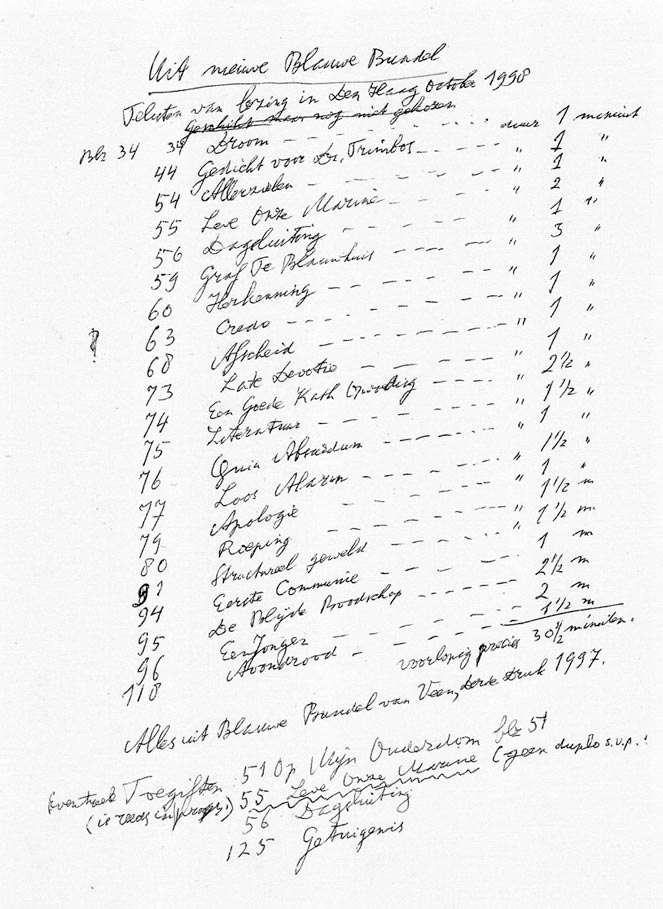 Uit nieuwe Blauwe Bundel
Teksten van lezing in Den Haag October 1998
Geschikt maar nog niet gekozen
Blz 34 34 Droom - - - - - - - duur 1 minuut
44 Gedicht voor Dr. Trimbos - - - - " 1 "
54 Allerzielen - - - - - - " 1 "
55 Leve Onze Marine - - - - - " 2 "
56 Dagsluiting - - - - - " 1 "
59 Graf Te Blauwhuis - - - - " 3 "
60 Herkenning - - - - - " 1 "
63 Credo - - - - - - " 1 "
68 Afscheid - - - - - - " 1 "
73 Late Devotie - - - - - " 1 "
74 Een Goede Kath - - - - " 2 1/2 "
75 Literatuur - - - - - " 1 1/2 "
76 Quia Absurdum - - - - - " 1 "
77 Loos Alarm - - - - - " 1 1/2 "
79 Apologie - - - - - " 1 "
80 Roeping - - - - - " 1 1/2 m
91 Structureel geweld - - - - " 1 1/2 m
94 Eerste Communie - - - - - 1 m
95 De Blijde Boodschap - - - - 2 1/2 m
96 Een Jongen - - - - - 2 m
118 Avondrood - - - - - 1 1/2 m
voorlopig precies 30 1/2 minuten.
Alles uit Blauwe Bundel van Veen, derde druk 1997.
Eventueel Toegiften 51 Op Mijn Ouderdom blz 51
(is reeds in progr.) 55 Leve Onze Marine (geen duplo s.v.p.!
56 Dagsluiting
125 Getuigenis